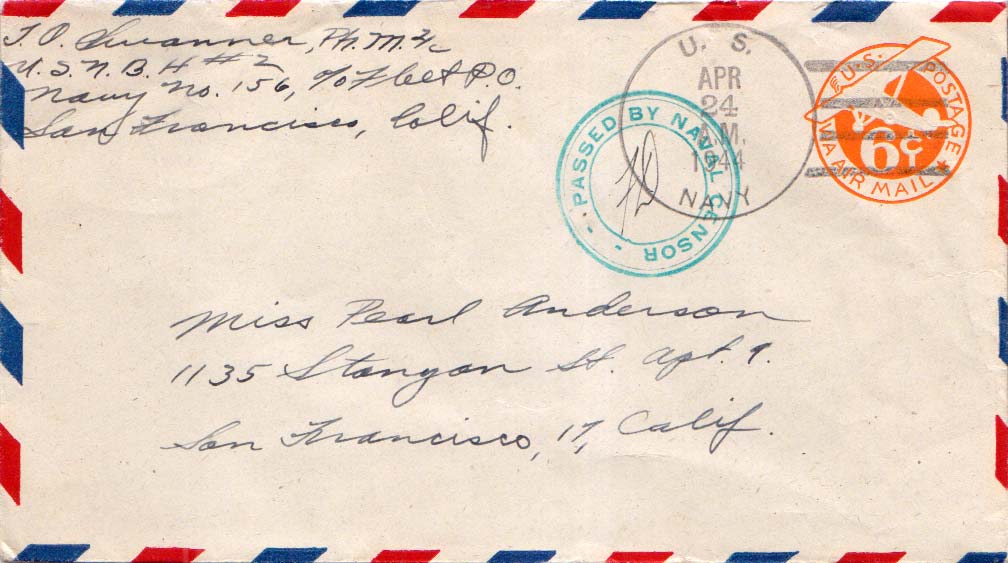 T. O. Swanner, Ph. M. 2/c
U. S. N. B. H # 2
Navy No. 156, c/o Fleet P.O.
San Francisco, Calif.
U. S.
APR
24
A.M.
1944
NAVY
PASSED BY NAVAL CENSOR
U.S. POSTAGE
6¢
VIA AIR MAIL
Miss Pearl Anderson
1135 Stanyan St. Apt. 9.
San Francisco, 17, Calif.